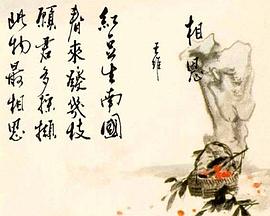 相思
王維
紅豆生南國
春來發幾枝
願君多採擷
此物最相思